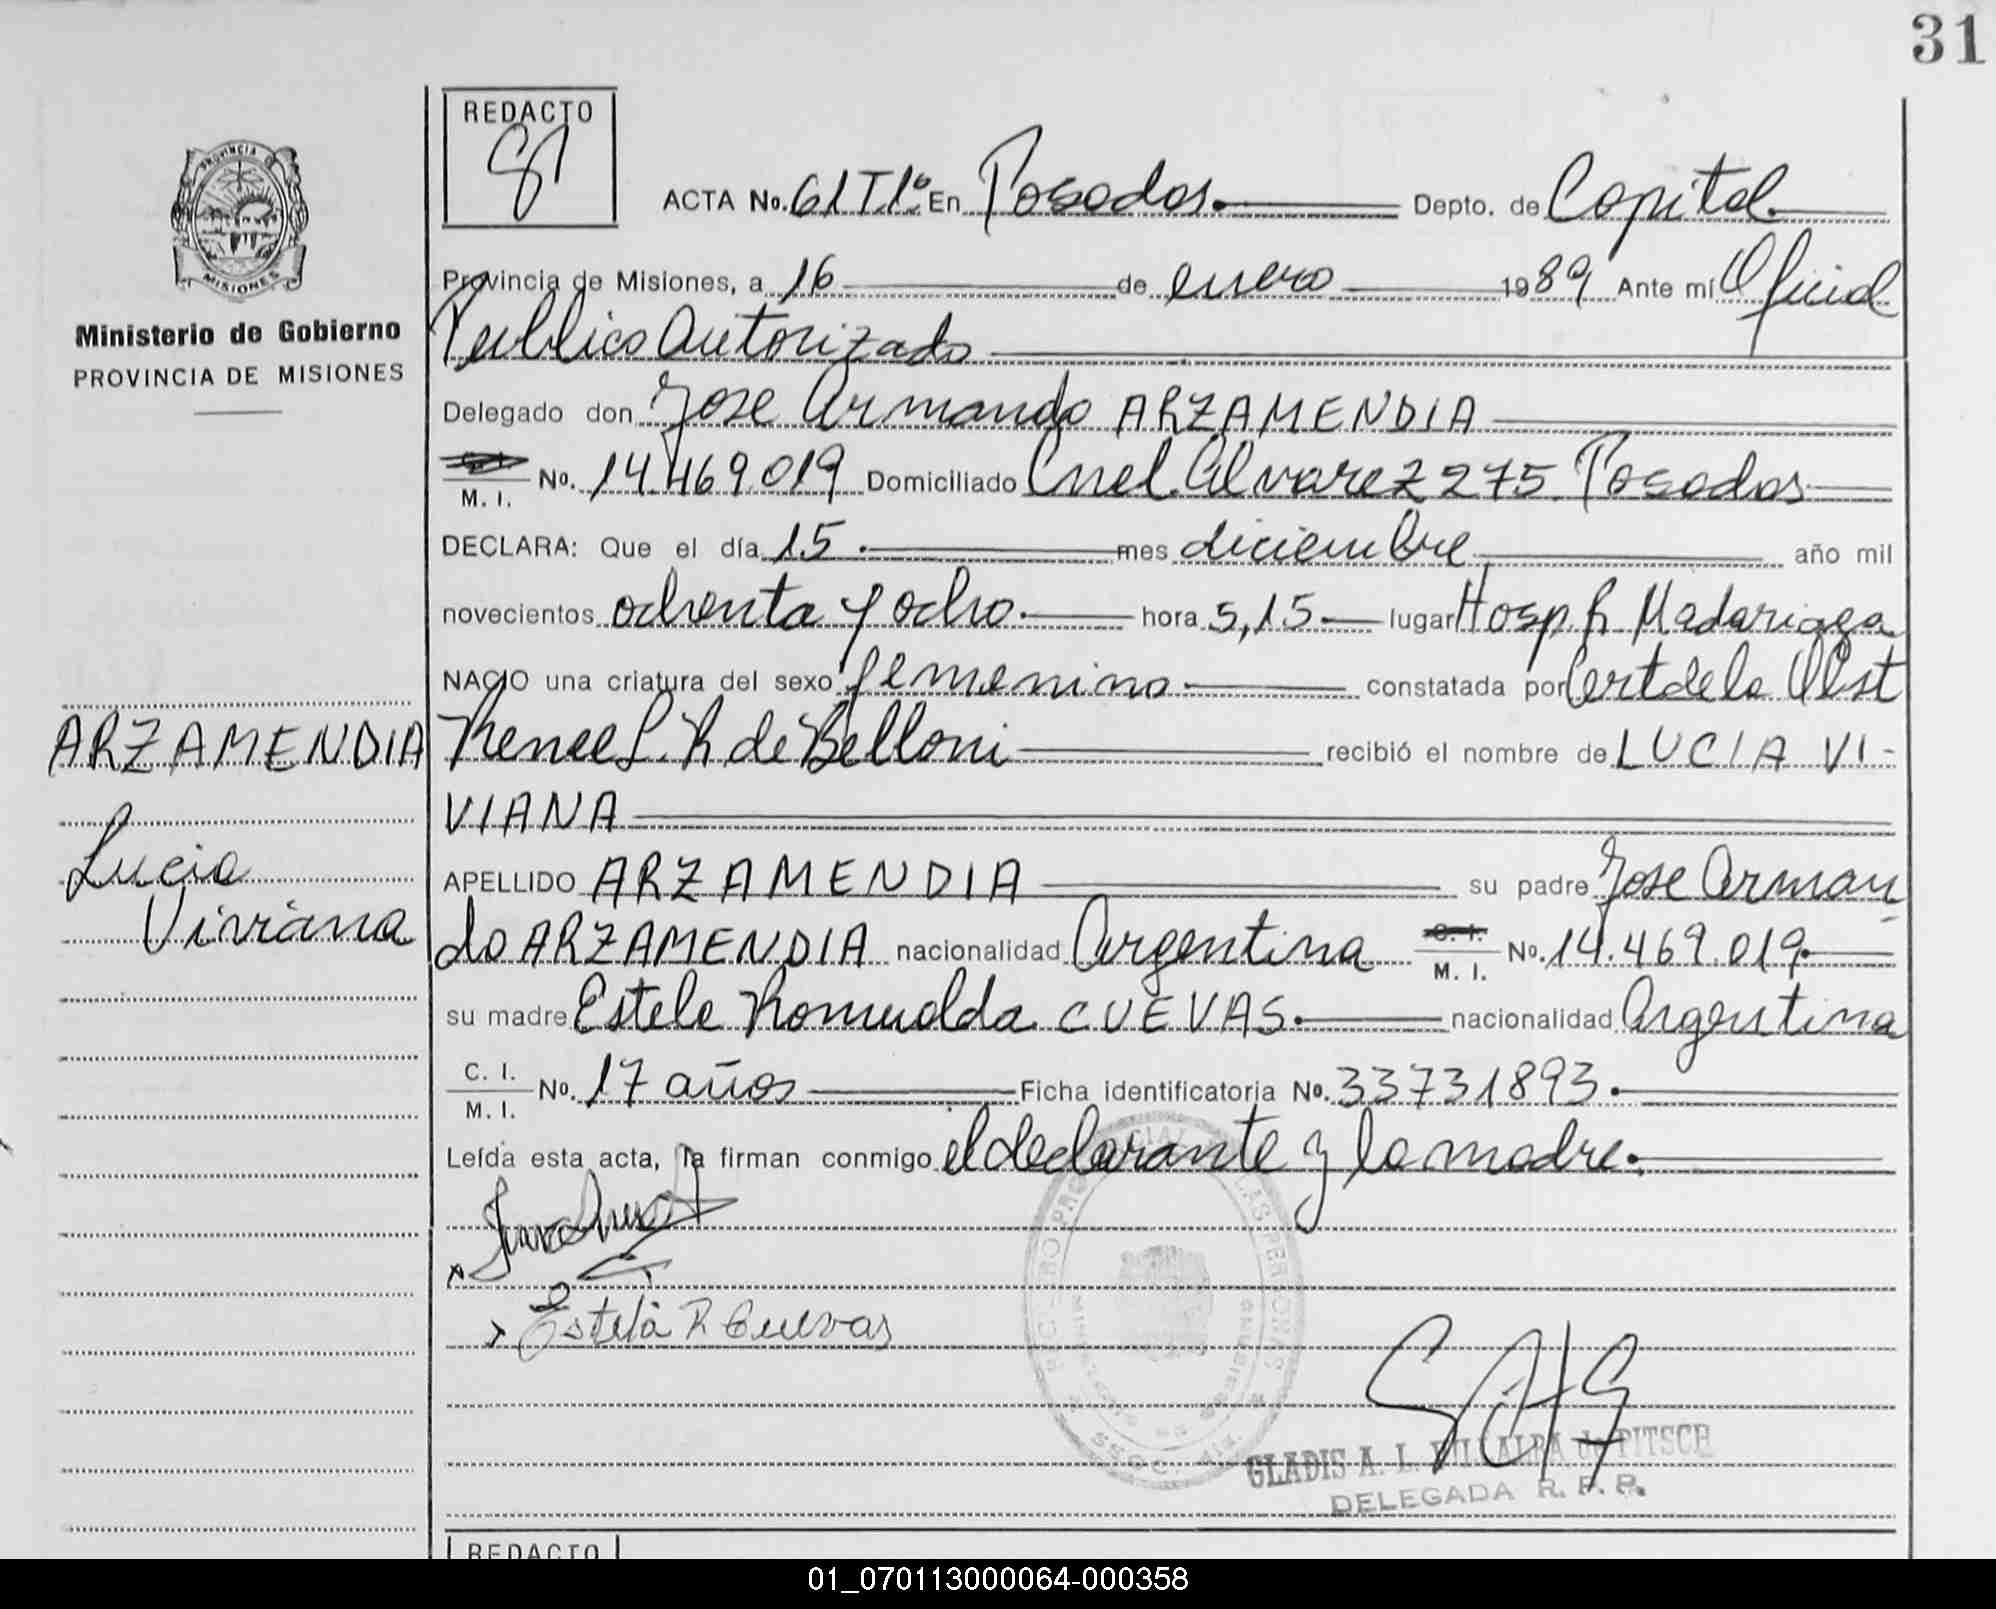 31
PROVINCIA DE
MISIONES
Ministerio de Gobierno
PROVINCIA DE MISIONES
ARZAMENDIA
Lucia
Viviana
REDACTO
ACTA No. 61 T.1º. En Posadas. Depto. de Capital.
Provincia de Misiones, a 16 de enero 1989 Ante mí Oficial
Publico Autorizado
Delegado don Jose Armando ARZAMENDIA
M. I. No. 14.469.019 Domiciliado Cnel. Alvarez 275. Posadas
DECLARA: Que el día 15. mes diciembre año mil
novecientos ochenta y ocho. hora 5,15. lugar Hosp. R Madariaga
NACIO una criatura del sexo femenino. constatada por Cert de la Obst
Renee L. R de Belloni recibió el nombre de LUCIA VI-
VIANA
APELLIDO ARZAMENDIA su padre Jose Arman
do ARZAMENDIA nacionalidad Argentina C. I. M. I. No. 14.469.019.
su madre Estela Romualda CUEVAS. nacionalidad Argentina
C. I. M. I. No. 17 años Ficha identificatoria No. 33731893.
Leída esta acta, la firman conmigo el declarante y la madre.
Estela R Cuevas
GLADIS A. L. VILLALBA de PITSCH
DELEGADA R. P. P.
REDACTO
01_070113000064-000358